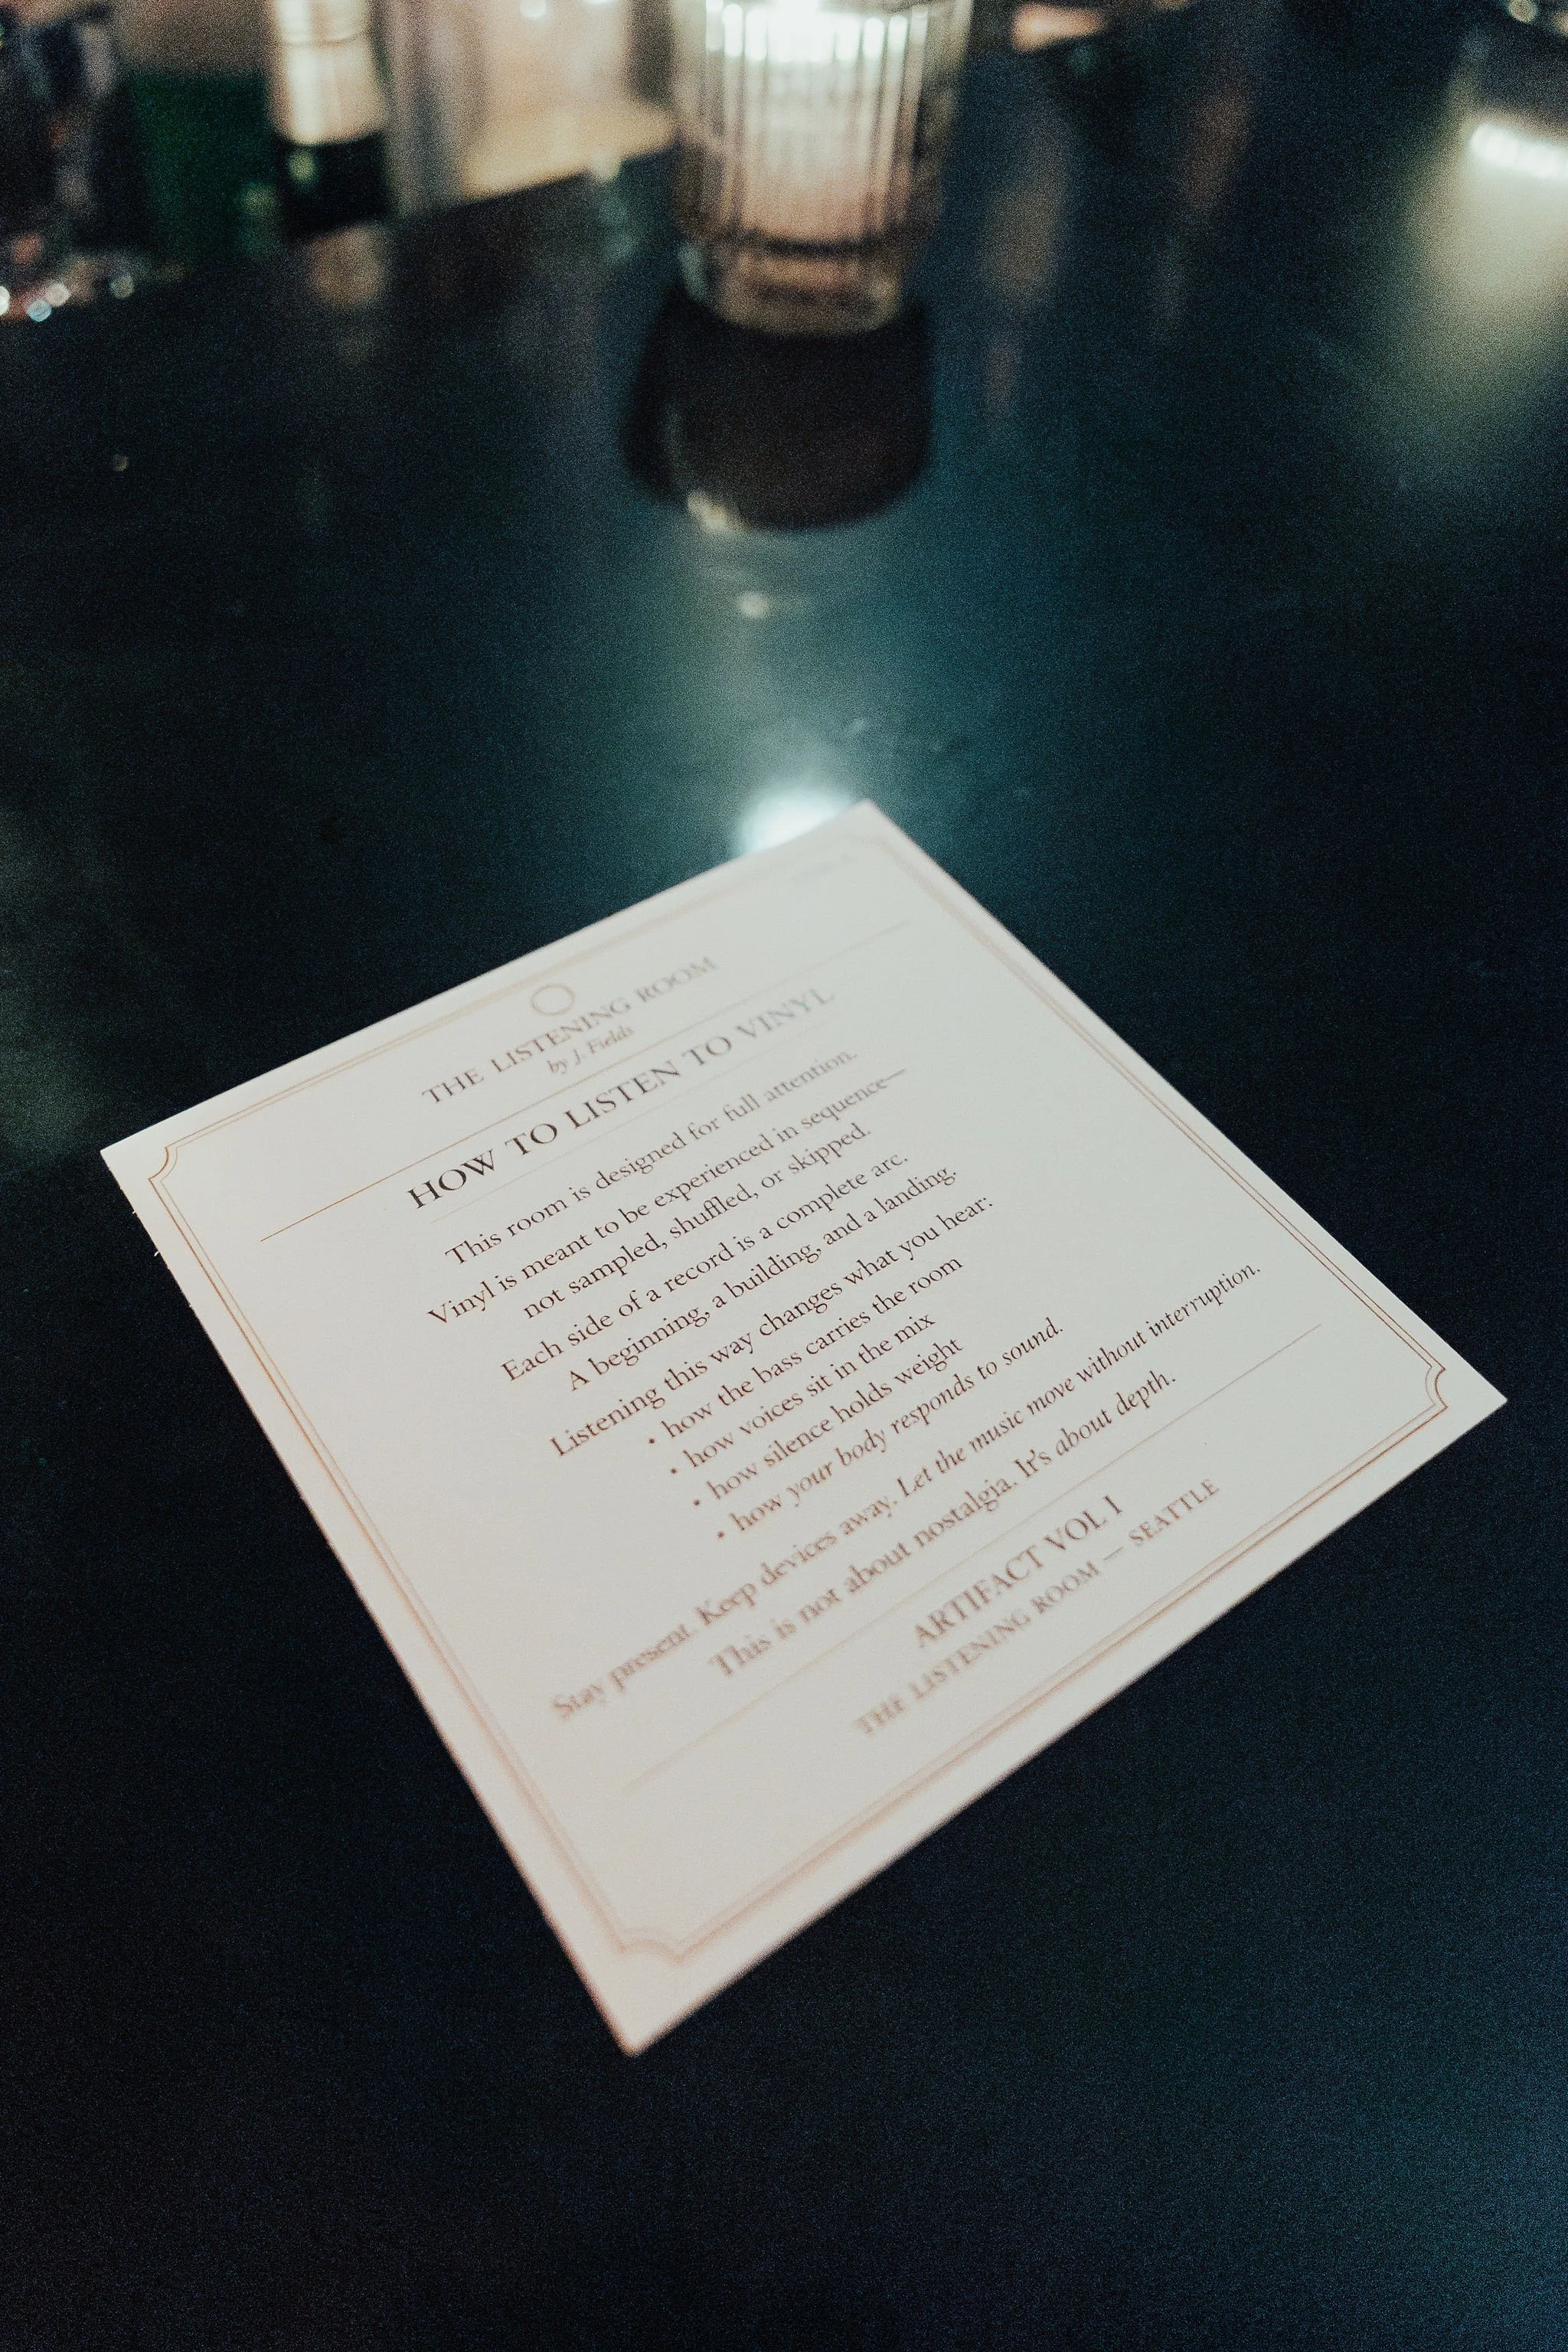 THE LISTENING ROOM
by J. Fields
HOW TO LISTEN TO VINYL
This room is designed for full attention.
Vinyl is meant to be experienced in sequence—
not sampled, shuffled, or skipped.
Each side of a record is a complete arc.
A beginning, a building, and a landing.
Listening this way changes what you hear:
• how the bass carries the room
• how voices sit in the mix
• how silence holds weight
• how your body responds to sound.
Stay present. Keep devices away. Let the music move without interruption.
This is not about nostalgia. It's about depth.
ARTIFACT VOL I
THE LISTENING ROOM — SEATTLE